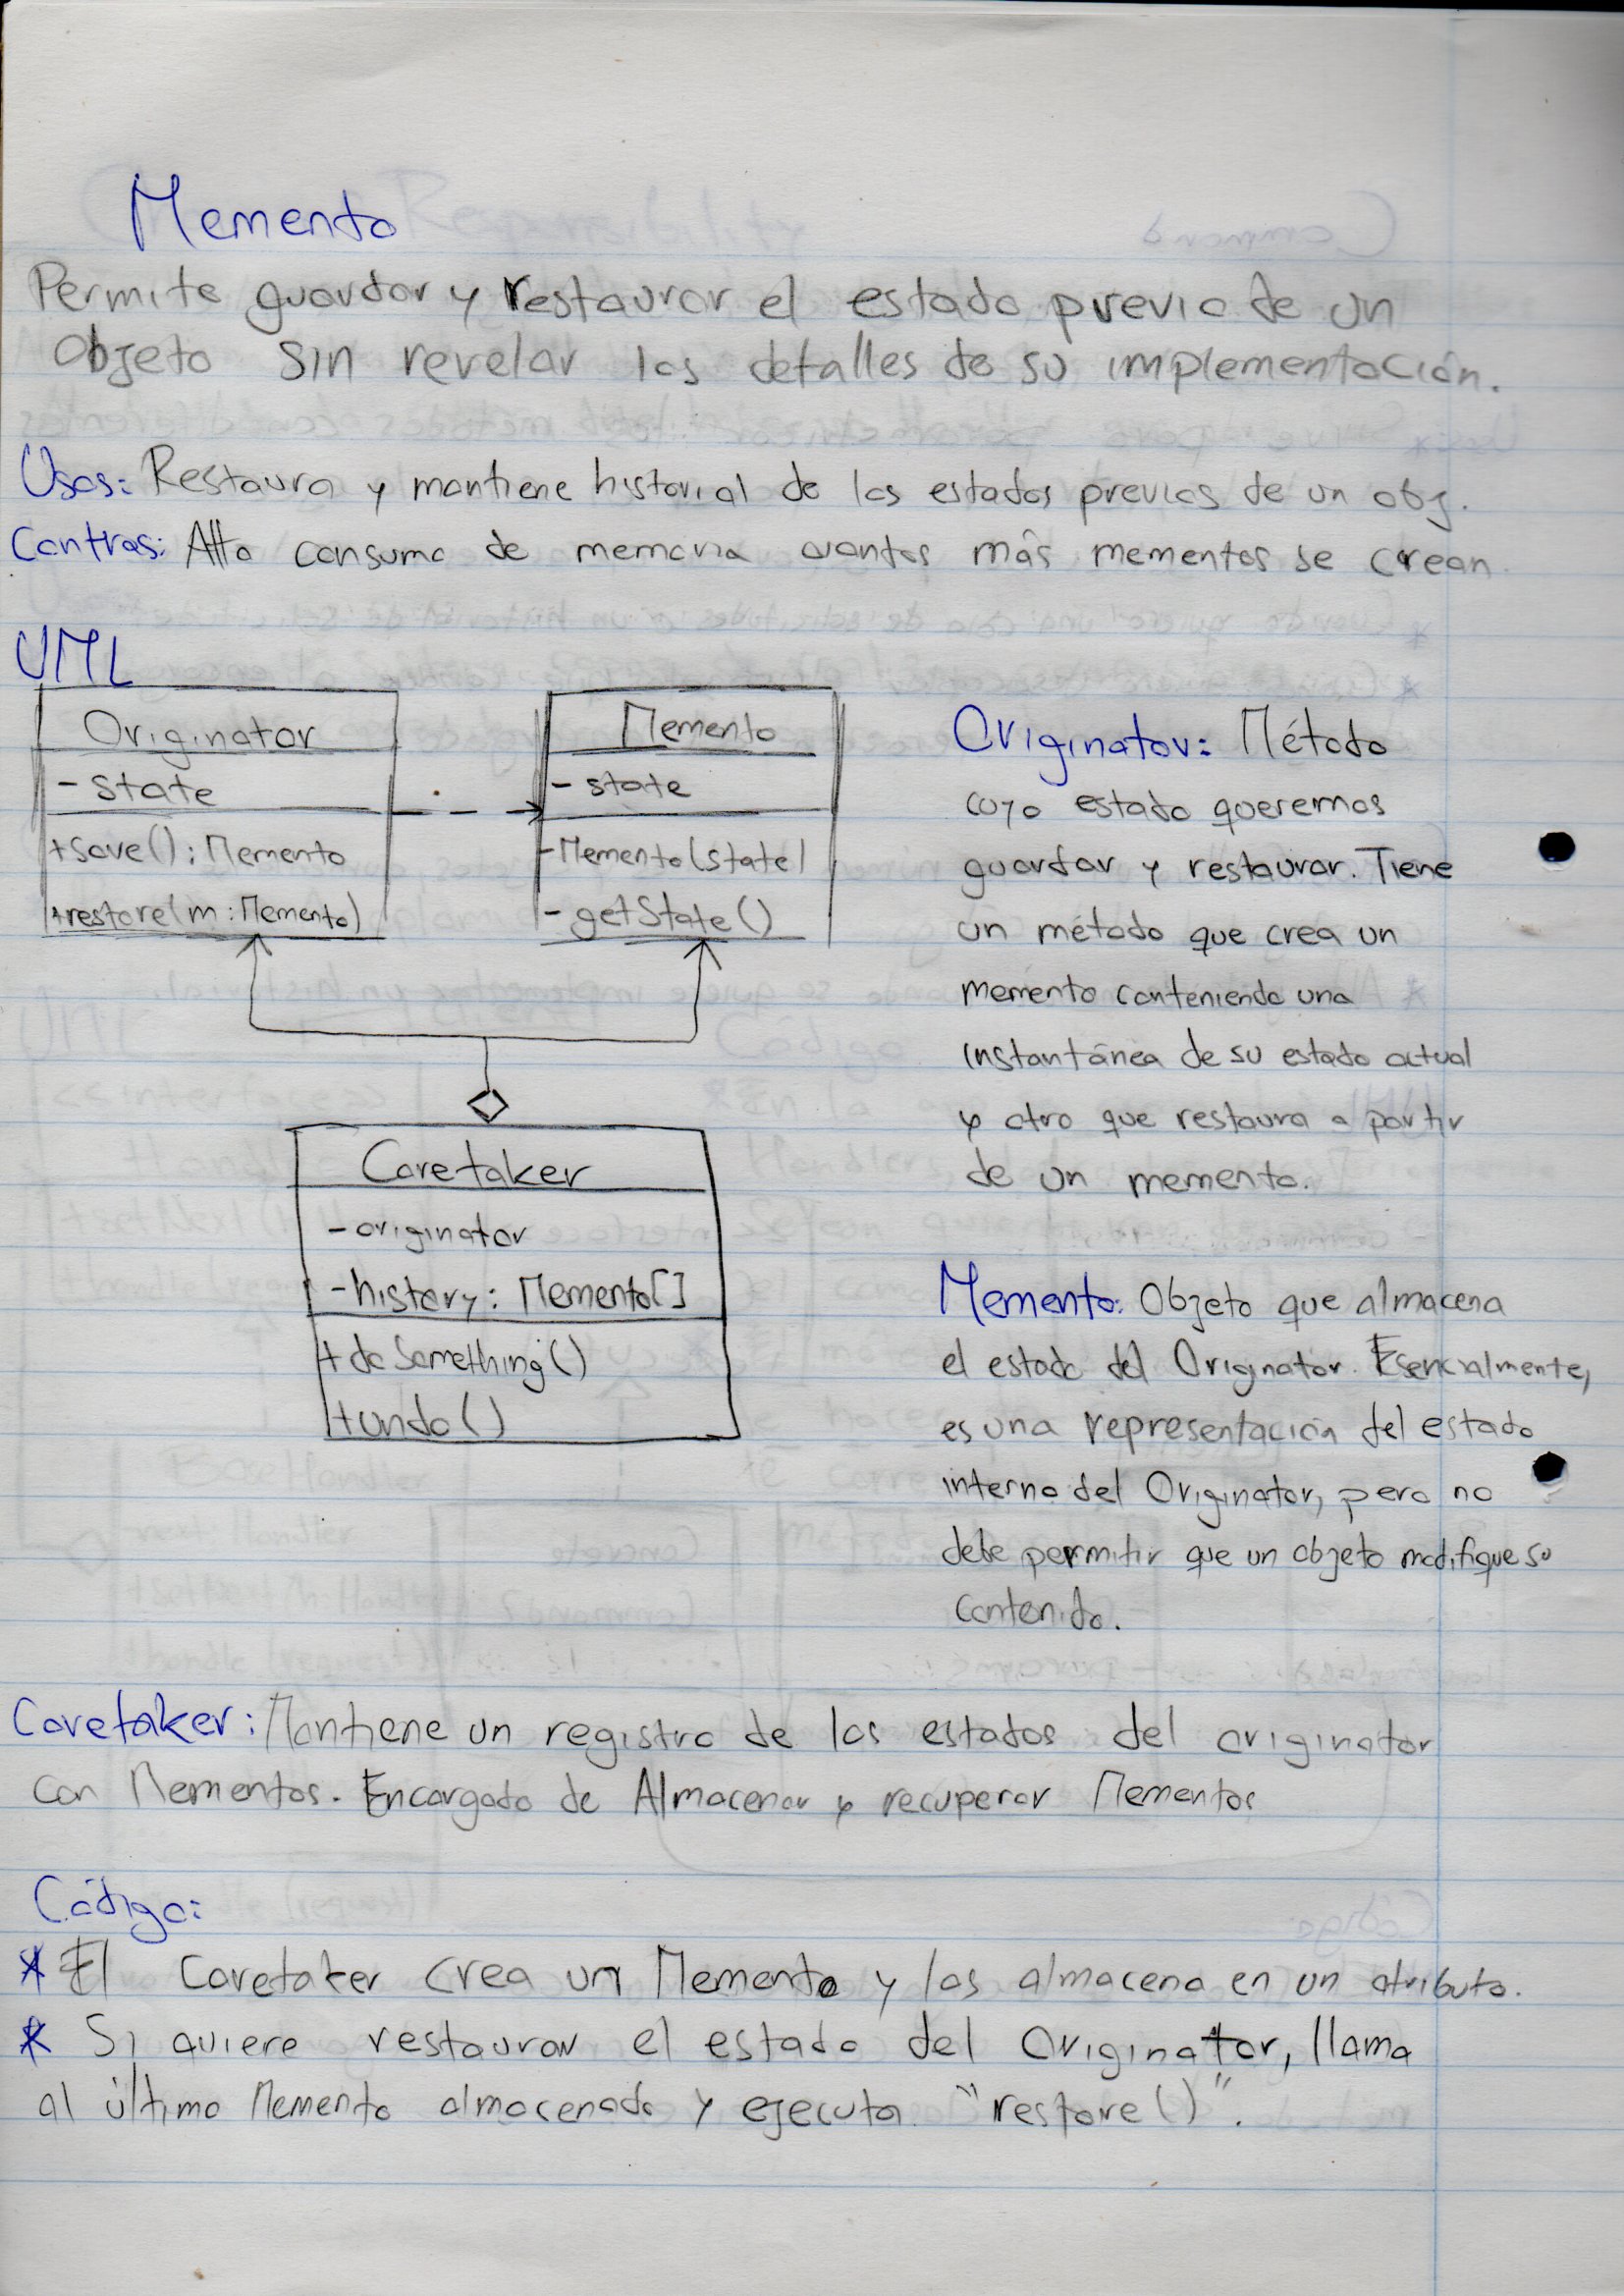 Memento
Permite guardar y restaurar el estado previo de un
Objeto sin revelar los detalles de su implementación.
Usos: Restaura y mantiene historial de los estados previos de un obj.
Contras: Alto consumo de memoria cuantos más mementos se crean.
UML
Originator
- state
+save(): Memento
+restore(m: Memento)
Memento
- state
-Memento(state)
- getState()
Caretaker
- originator
- history: Memento[]
+ doSomething()
+ undo()
Originator: Método
cuyo estado queremos
guardar y restaurar. Tiene
un método que crea un
memento conteniendo una
instantánea de su estado actual
y otro que restaura a partir
de un memento.
Memento: Objeto que almacena
el estado del Originator. Esencialmente,
es una representación del estado
interno del Originator, pero no
debe permitir que un objeto modifique su
contenido.
Caretaker: Mantiene un registro de los estados del originator
con Mementos. Encargado de Almacenar y recuperar Mementos
Código:
* El Caretaker crea un Memento y los almacena en un atributo.
* Si quiere restaurar el estado del Originator, llama
al último Memento almacenado y ejecuta "restore()".